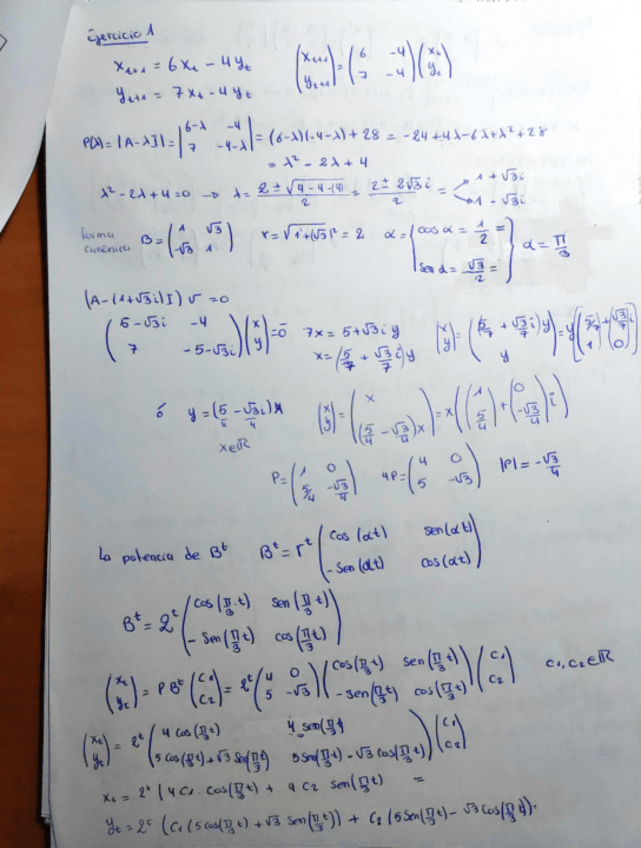 Ejercicio 1
x_{t+1} = 6x_t - 4y_t   (x_{t+1} y_{t+1}) = (6 -4 / 7 -4)(x_t y_t)
y_{t+1} = 7x_t - 4y_t
P(λ) = |A-λI| = |6-λ -4 / 7 -4-λ| = (6-λ)(-4-λ) + 28 = -24+4λ-6λ+λ²+28
= λ² - 2λ + 4
λ² - 2λ + 4 = 0 → λ = (2 ± √(4-4·(4)))/2 = (2 ± 2√3 i)/2 = 1 + √3i
1 - √3i
forma canónica B = (1 √3 / -√3 1)   r = √(1²+(√3)²) = 2   α = {cos α = 1/2 = / sen α = √3/2 =} α = π/3
(A-(1+√3i)I) v = 0
(5-√3i -4 / 7 -5-√3i)(x y) = 0̄   7x = 5+√3i y   (x y) = ((5/7 + √3/7 i)y / y) = y[(5/7 / 1) + (√3/7 / 0) i]
x = (5/7 + √3/7 i) y
ó y = (5/4 - √3/4 i) x   (x y) = (x / (5/4 - √3/4 i)x) = x((1 / 5/4) + (0 / -√3/4) i)
x∈ℝ
P = (1 0 / 5/4 -√3/4)   4P = (4 0 / 5 -√3)   |P| = -√3/4
La potencia de B^t   B^t = r^t (cos(αt) sen(αt) / -sen(αt) cos(αt))
B^t = 2^t (cos(π/3·t) sen(π/3 t) / -sen(π/3 t) cos(π/3 t))
(x_t y_t) = P B^t (c1 c2) = 2^t (4 0 / 5 -√3)(cos(π/3 t) sen(π/3 t) / -sen(π/3 t) cos(π/3 t))(c1 c2)   c1, c2 ∈ ℝ
(x_t y_t) = 2^t (4 cos(π/3 t) 4 sen(π/3 t) / 5 cos(π/3 t) + √3 sen(π/3 t) 5 sen(π/3 t) - √3 cos(π/3 t))(c1 c2)
x_t = 2^t (4 c1 · cos(π/3 t) + 4 c2 sen(π/3 t)   =
y_t = 2^t (c1 (5 cos(π/3 t) + √3 sen(π/3 t)) + c2 (5 sen(π/3 t) - √3 cos(π/3 t)).